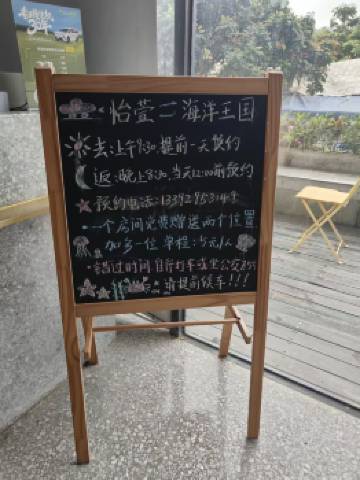 怡萱 = 海洋王国
去:上午9:30 提前一天预约
返:晚上8:30,当天12:00前预约
预约电话:
一个房间免费赠送两个位置
加多一位 单程:5元/人
错过时间 自行打车或坐公交
请提前候车!!!